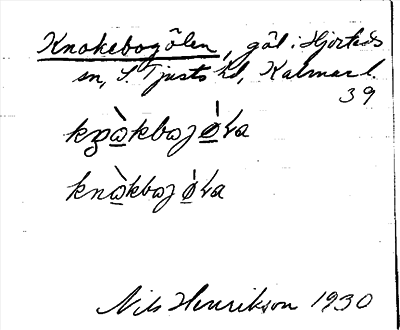 Knokebogölen, göl i Hjorteds
sn, S. Tjusts hd, Kalmar l.
39
knàkbogǿla
Nils Henrikson 1930